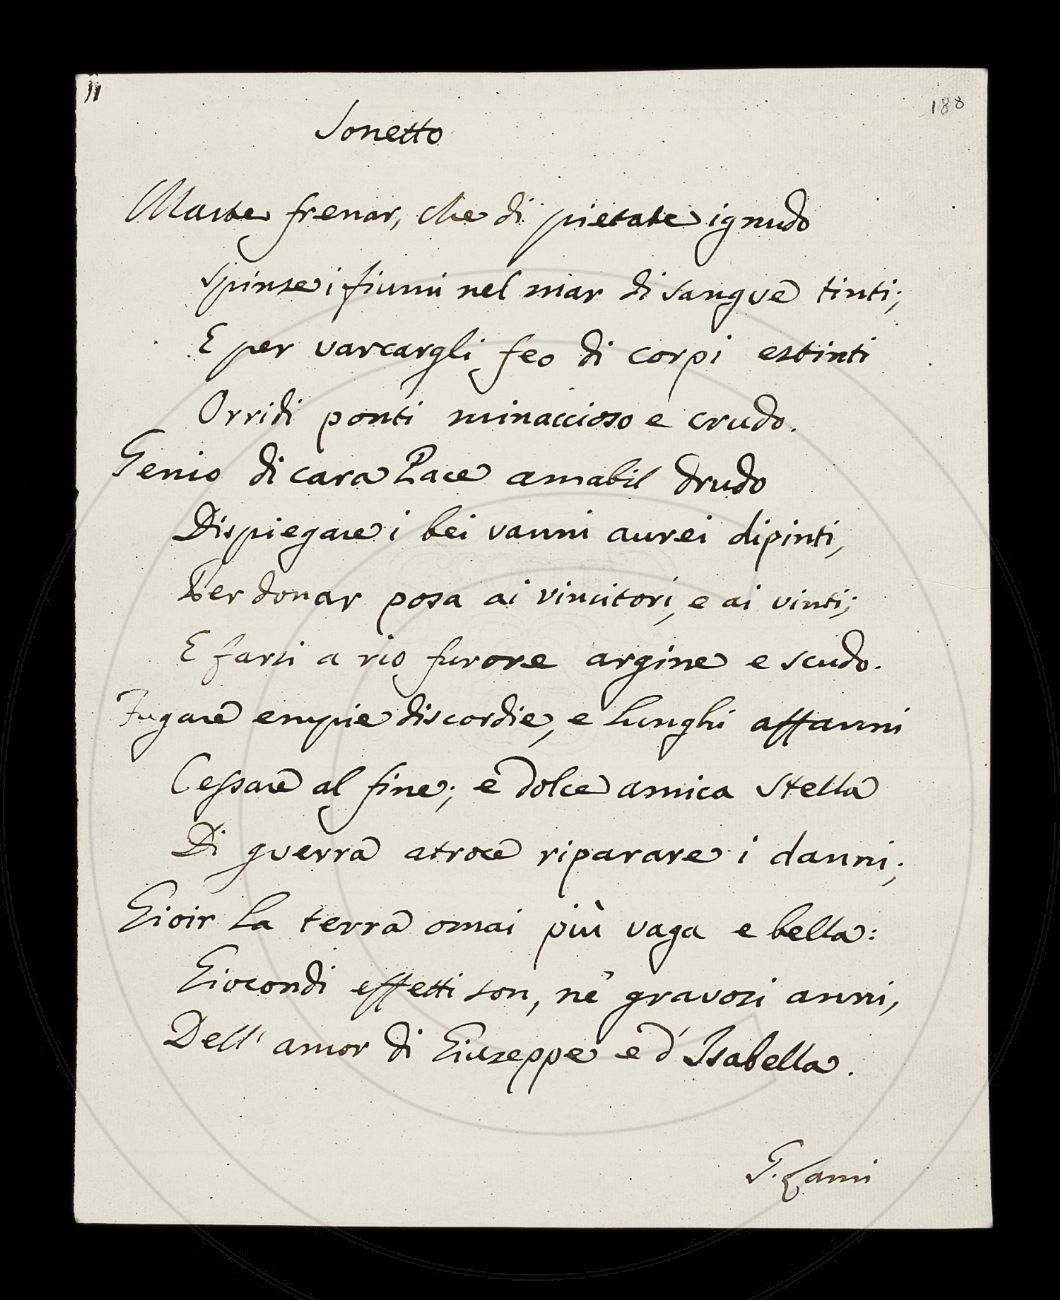 188
Sonetto
Marte frenar, che di pietate ignudo
Spinse i fiumi nel mar di sangue tinti;
E per varcargli feo di corpi estinti
Orridi ponti minaccioso e crudo.
Genio di cara Pace amabil drudo
Dispiegare i bei vanni aurei dipinti,
Per donar posa ai vincitori, e ai vinti;
E farsi a rio furore argine e scudo.
Fugare empie discordie, e lunghi affanni
Cessare al fine; e dolce amica stella
Di guerra atroce riparare i danni;
Gioir la terra omai più vaga e bella:
Giocondi effetti son, nè gravosi anni,
Dell' amor di Giuseppe e d' Isabella.
G. Lami